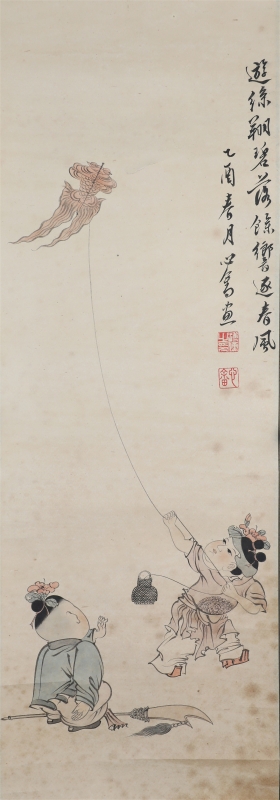 遊絲翔碧落餘響逐春風
乙酉春月心畬畫